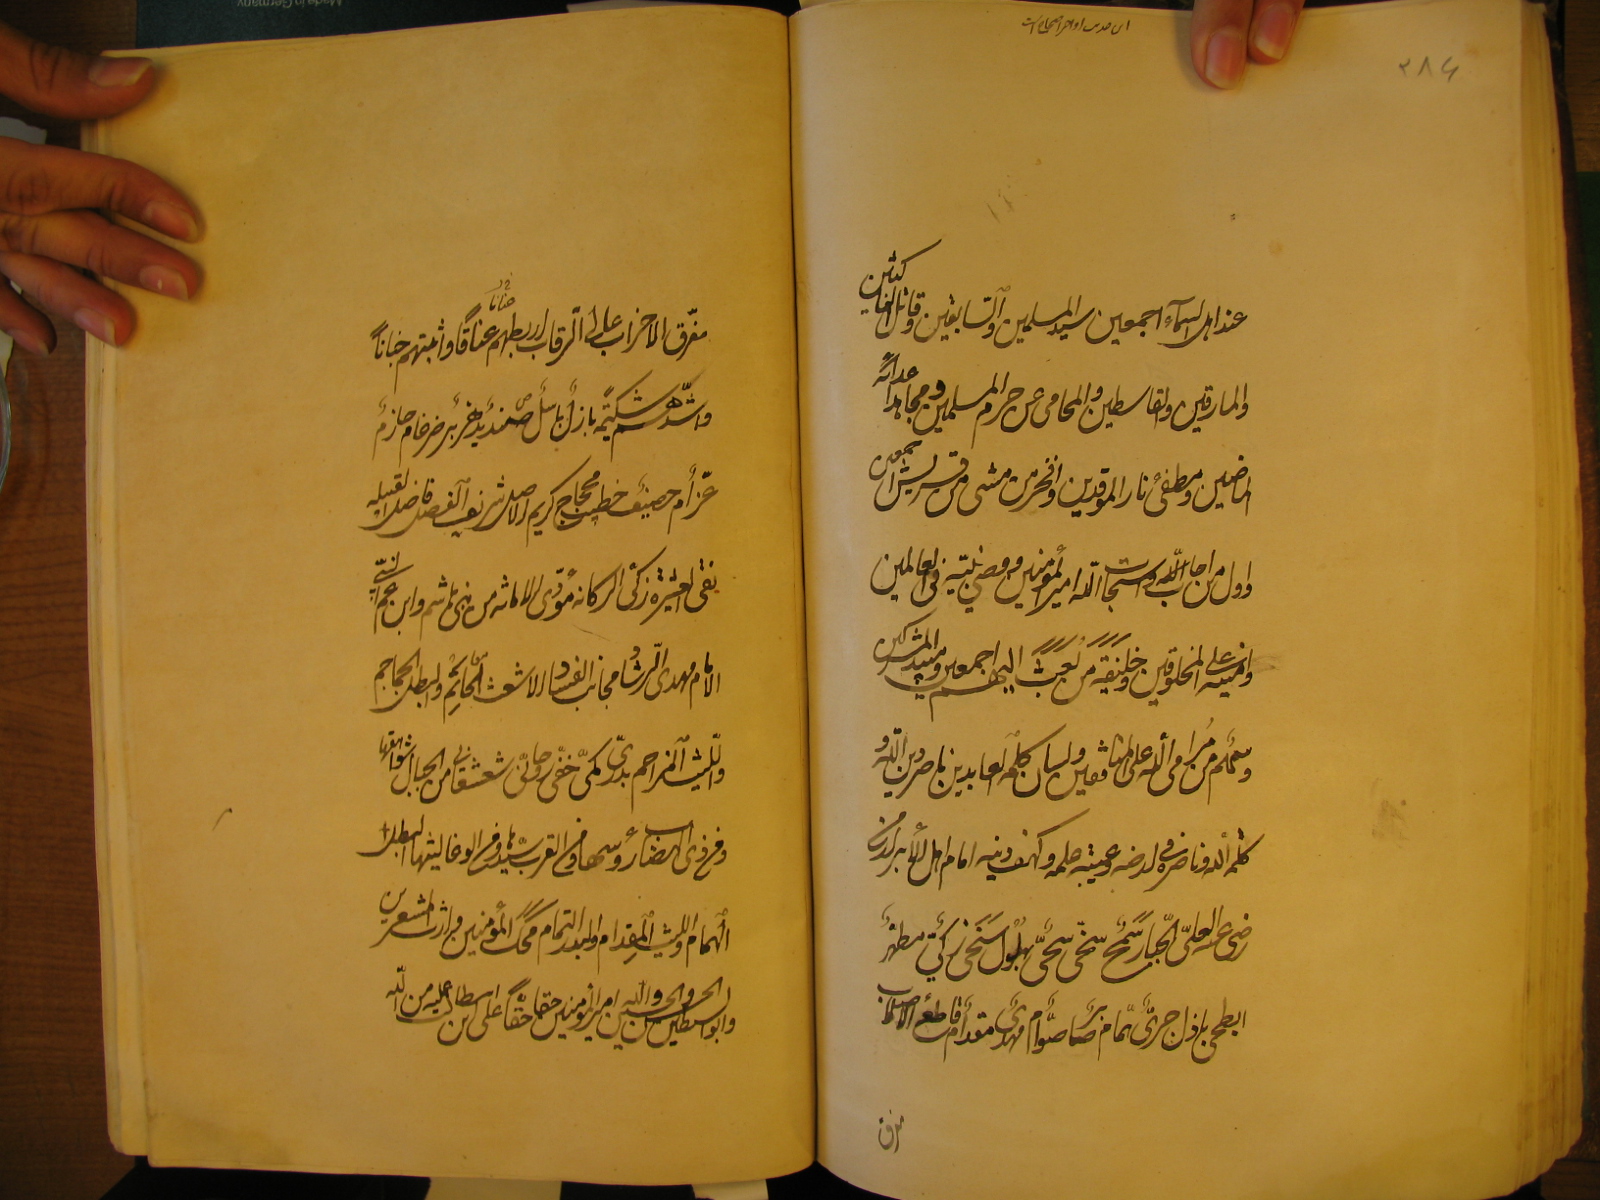 Made in Germany
۲۸۶
عند اهل السماء اجمعین سید المسلمین و السابقین و قاتل الناکثین
و المارقین و القاسطین و المحامی عن حرم المسلمین و مجاهد اعدائه
الناصبین و مطفئ نار الموقدین و افخر من مشی من قریش اجمعین
و اول من اجاب و استجاب لله امیر المؤمنین و وصی نبیه فی العالمین
و امینه علی المخلوقین و خلیفة من بعث الیهم اجمعین و مبید المشرکین
و سهم من مرامی الله علی المنافقین و لسان کلمة العابدین ناصر دین الله و
کلمة الله و ناصره فی ارضه و عیبة علمه و کهف دینه امام اهل الابرار من
رضی عنه العلی الجبار سمح سخی حیی بهلول سنحنحی زکی مطهر
ابطحی باذل جری همام صابر صوام مهدی مقدام قاطع الاصلاب
مفرق
مفرق الاحزاب عالی الرقاب اربطهم عنانا و اثبتهم جنانا
و اشدهم شکیمة بازل باسل صندید هزبر ضرغام حازم
عزام حصیف خطیب محجاج کریم الاصل شریف الفصل فاضل القبیلة
نقی العشیرة زکی الرکانة مؤدی الامانة من بنی هاشم و ابن عم النبی
الامام مهدی الرشاد مجانب الفساد الاشعث الحاتم و البطل الجماجم
و اللیث المزاحم بدری مکی حنفی روحانی شعشعانی من الجبال شواهقها
و من ذی الهضاب رؤسها و من العرب سیدها و من الوغا لیثها البطل
الهمام و اللیث المقدام و البدر التمام محک المؤمنین و وارث المشعرین
و ابو السبطین الحسن و الحسین و الله امیر المؤمنین حقا حقا علی بن ابی طالب علیه من الله